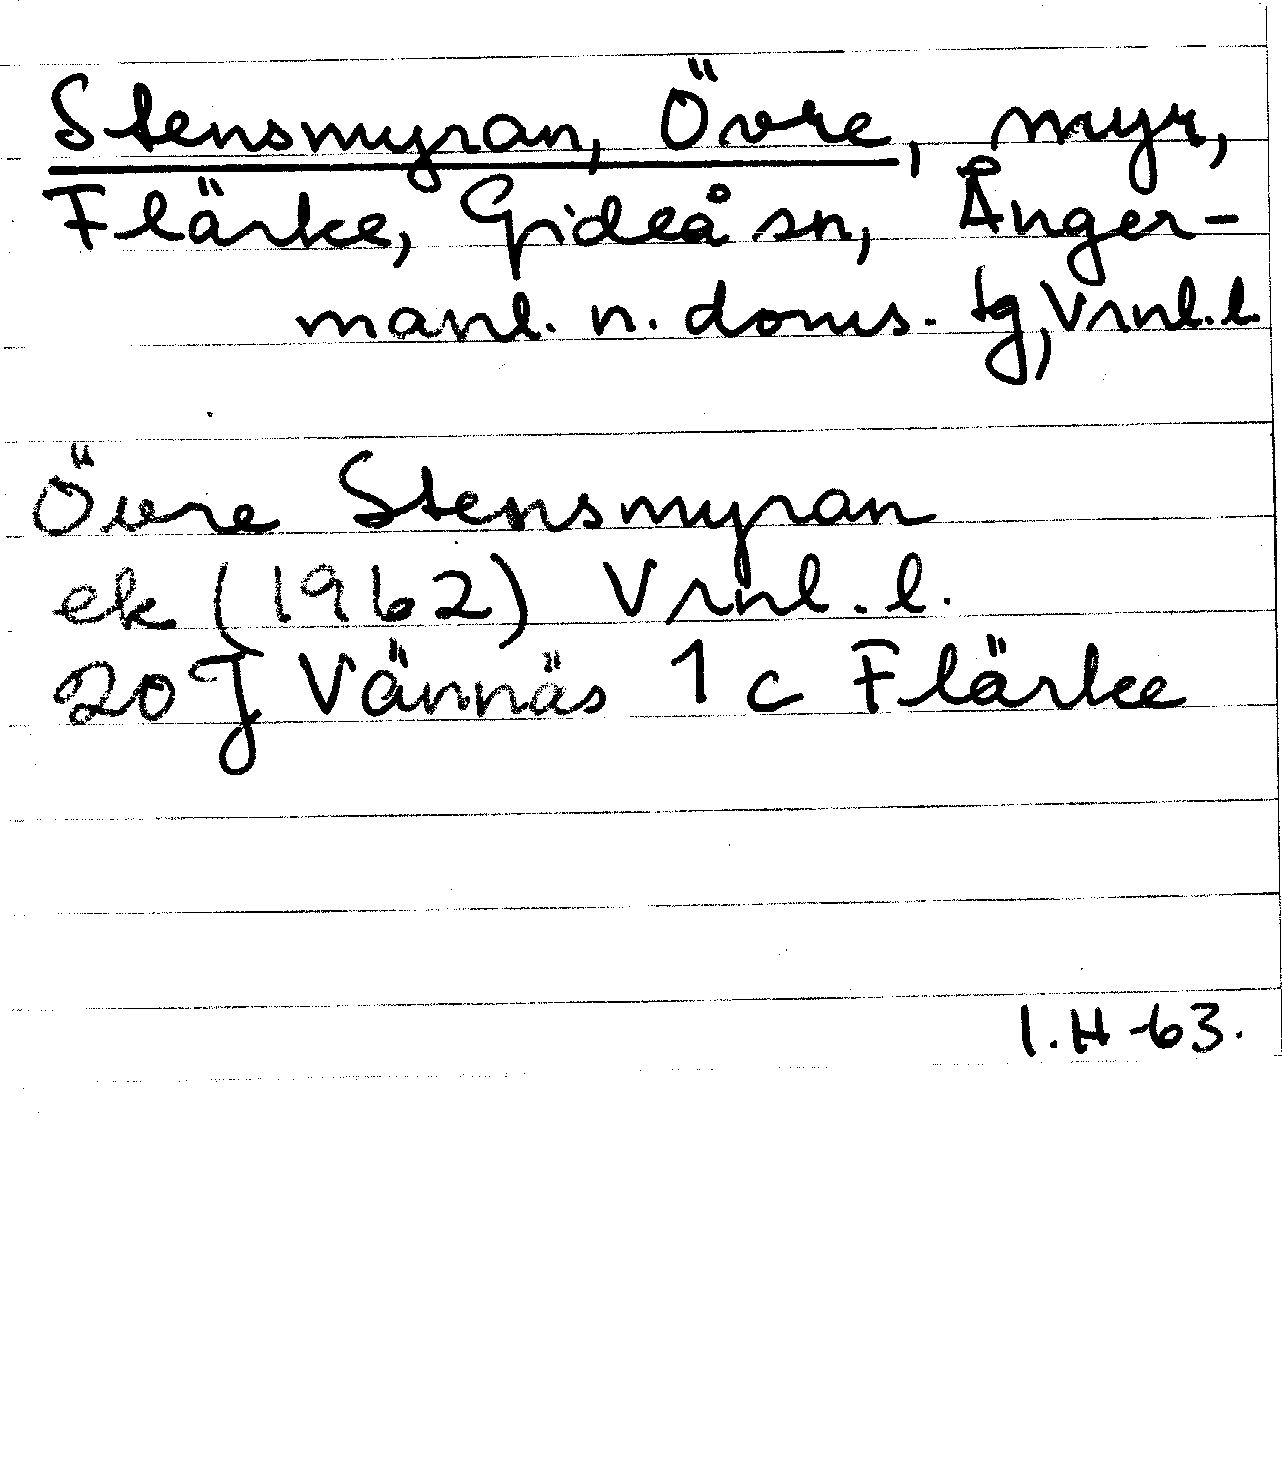 Stensmyran, Övre, myr,
Flärke, Gideå sn, Ånger-
manl. n. doms. tg, Vrnl. l.
Övre Stensmyran
ek (1962) Vrnl. l.
20 J Vännäs 1 c Flärke
I. H -63.